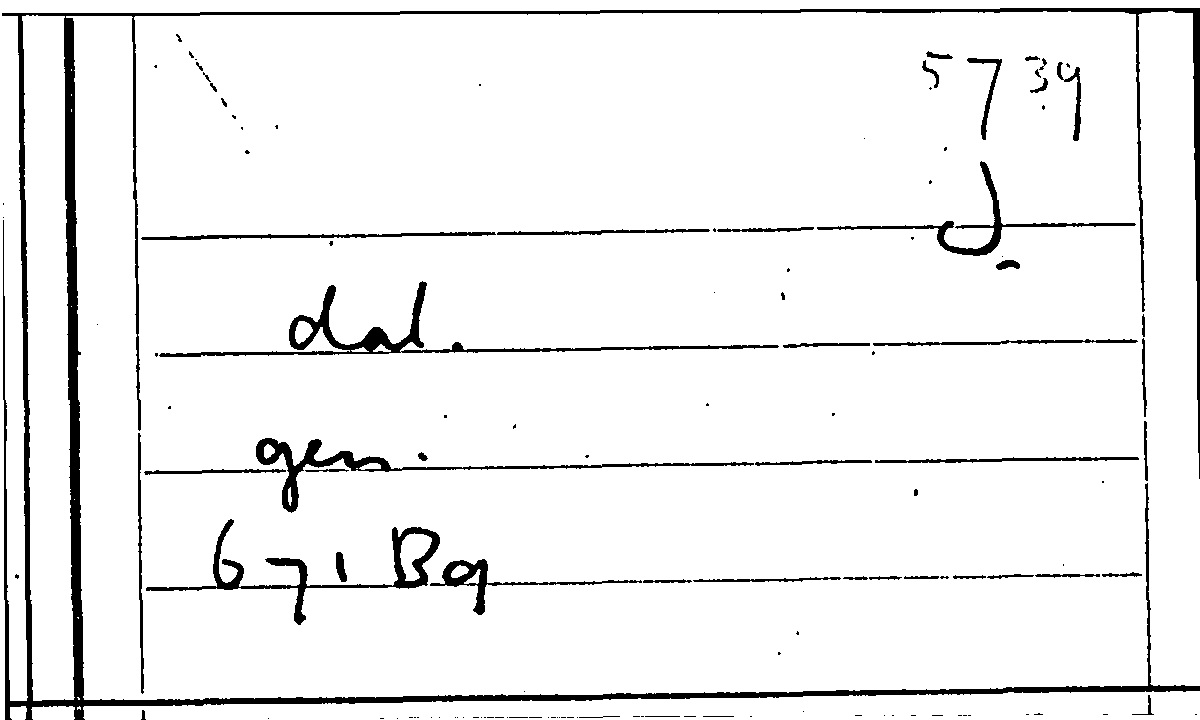 5739
J.
dat.
gen.
671 Bq